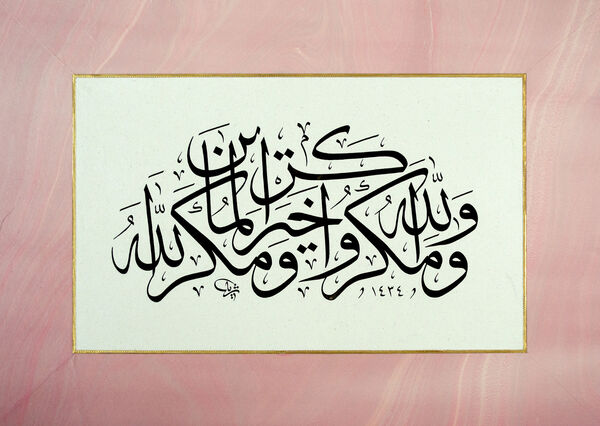 ومكروا ومكر الله والله خير الماكرين
١٤٣٤